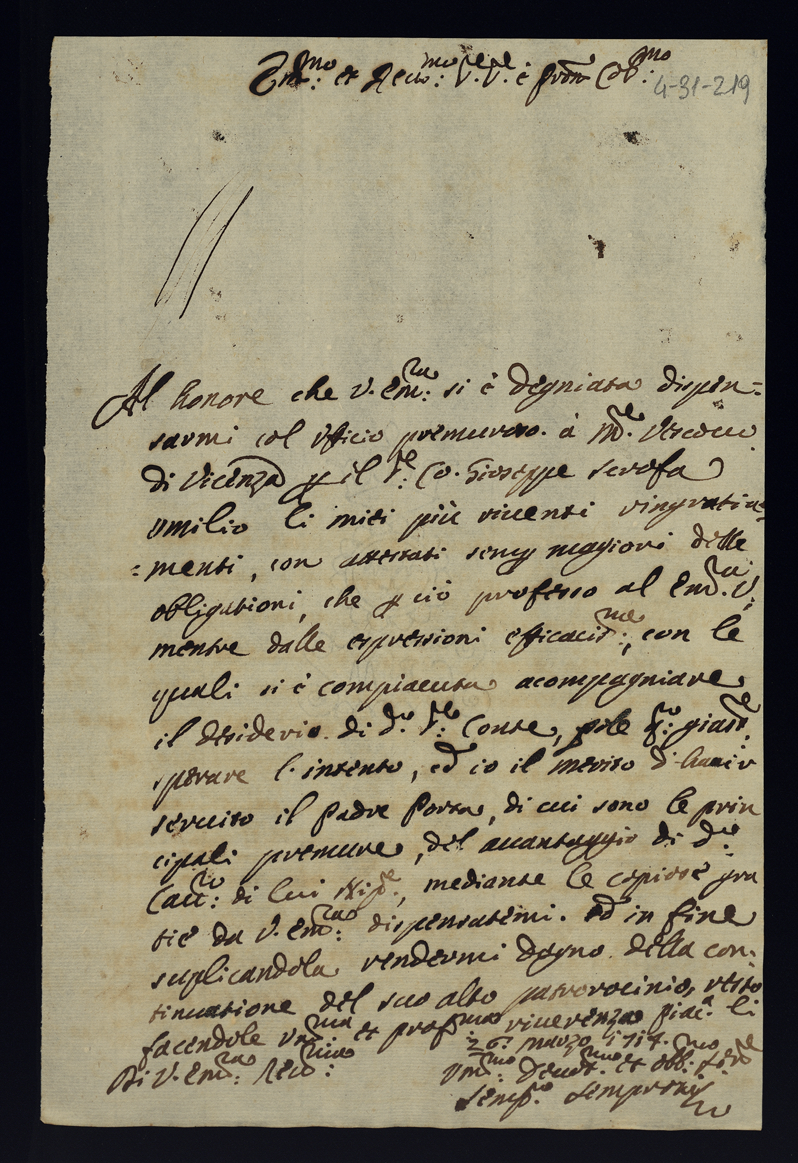 Em.mo et Reu.mo S.re S.re e Pron Col.mo
4-31-219
Al honore che V. Em.za si è degniata dispen=
sarmi col Vfficio premuroso à M.e Vescouo
di Vicenza p il S.re Co. Gioseppe Scrofa
vmilio li miei più riuenti ringratia=
=menti, con attestati semp magiori delle
obligationi, che p ciò professo al Em.za V.
mentre dalle espressioni efficacis.me, con le
quali si è compiaciuta acompagniare
il desiderio di d.o S.re Conte, pole
sperare l'intento, ed io il merito d'hauer
seruito il Padre Porta, di cui sono le prin
cipali premure, del auantaggio di d.o
Cau.re di lui Nip.e, mediante le copiose gra
tie da V. Em.za dispensatemi. Ed in fine
suplicandola rendermi degno della con=
tinuatione del suo alto patrorocinio, resto
facendole vm.ma et prof.ma riuerenza Piac.a li
26: marzo 1714.
Di V. Em.za Reu.ma
Vm.mo Deuot.mo et obb. Se.re